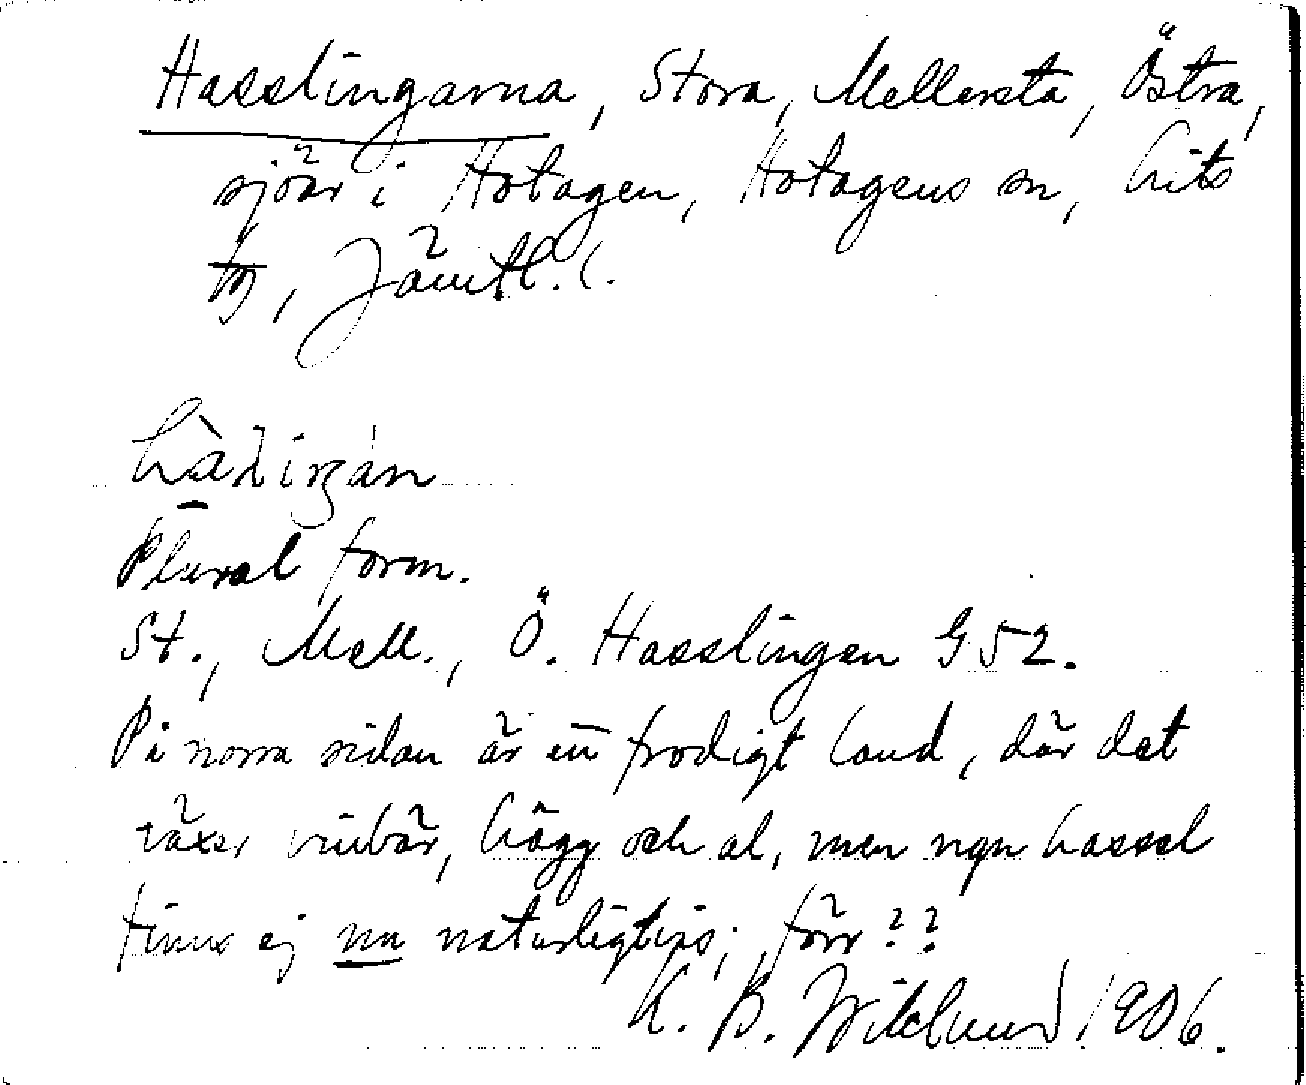 Hasslingarna, Stora, Mellersta, Östra,
sjöar i Hotagen, Hotagens sn, Lits
tg, Jämtl. l.
Plural form.
St., Mell., Ö. Hasslingen G52.
På norra sidan är en frodigt land, där det
växer vinbär, hägg och al, men ngn hassel
finns ej nu naturligtvis; förr??
K. B. Wiklund 1906.